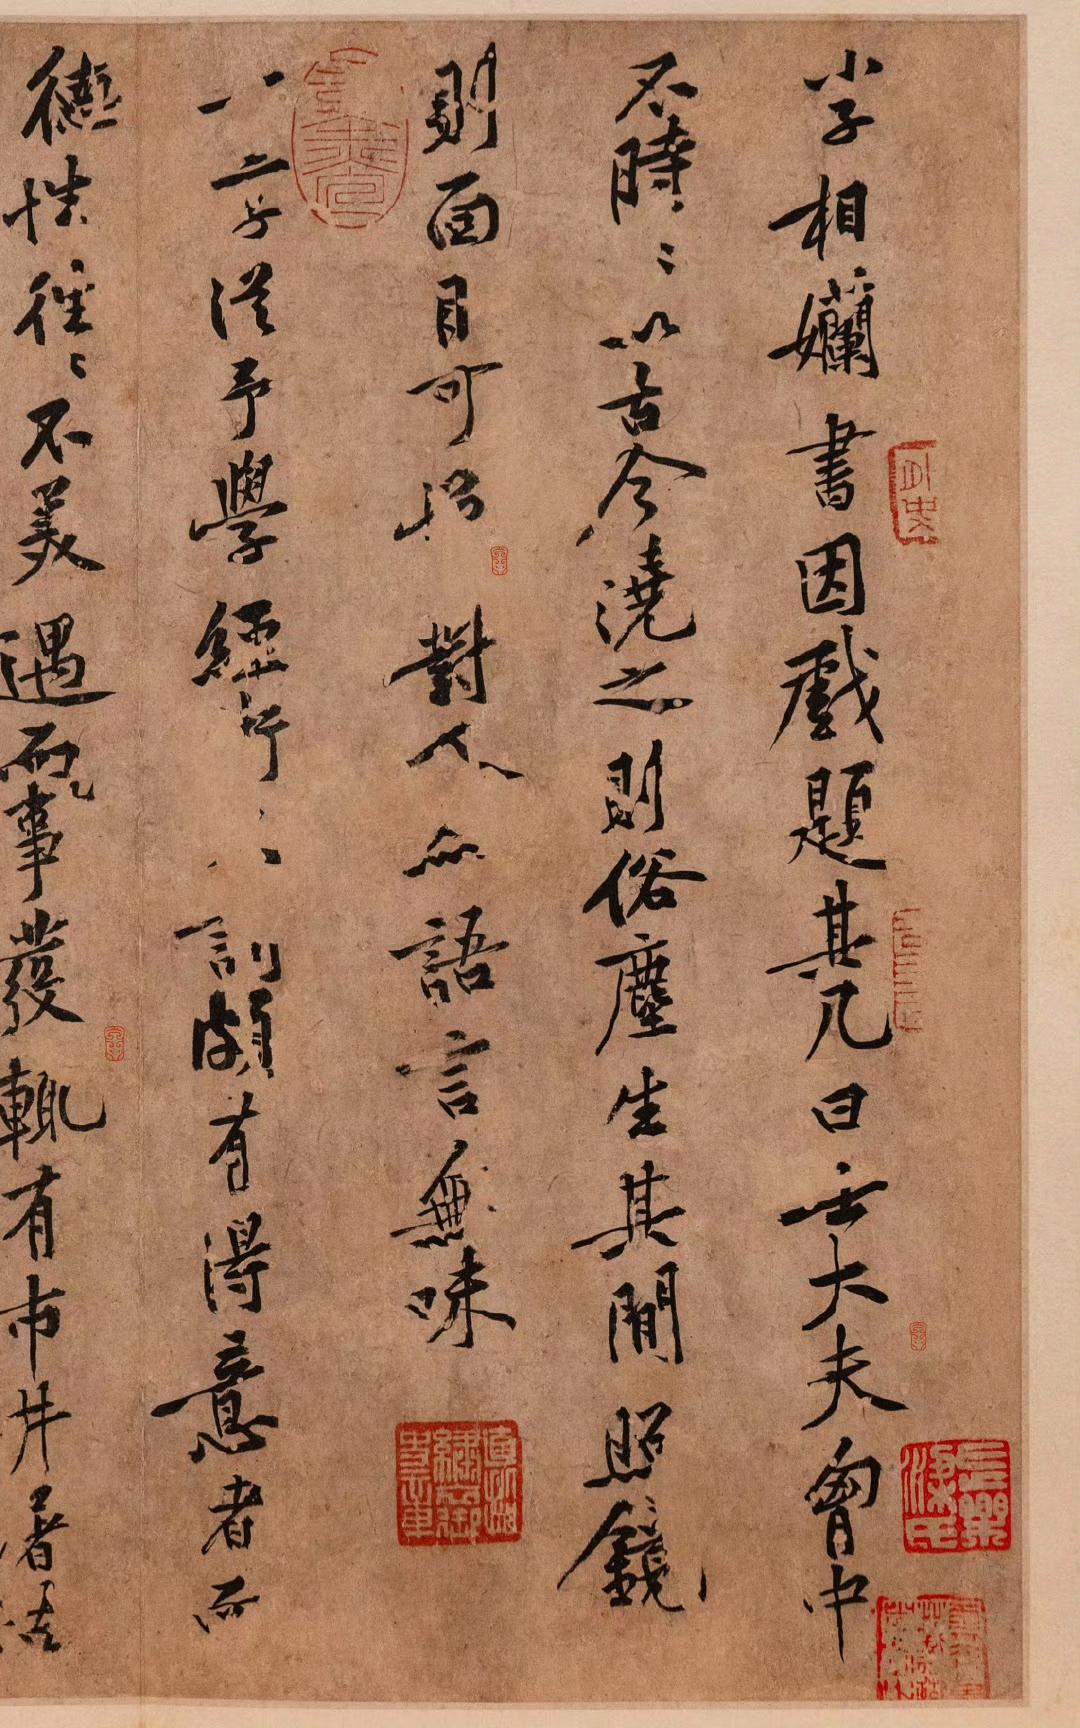 小子相嬾書因戲題其几曰士大夫胷中
不時〻以古今澆之則俗塵生其間照鏡
則面目可憎對人亦語言無味
一二子從予學經行訓頗有得意者而
德性往〻不美遇事發輒有市井屠沽